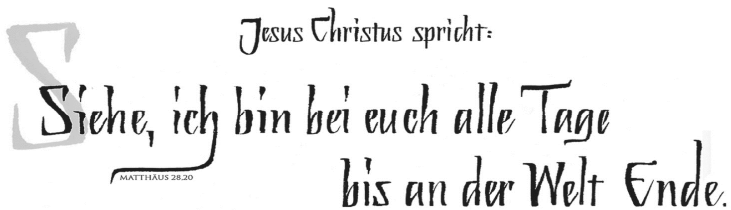 Jesus Christus spricht:
Siehe, ich bin bei euch alle Tage
MATTHÄUS 28.20
bis an der Welt Ende.